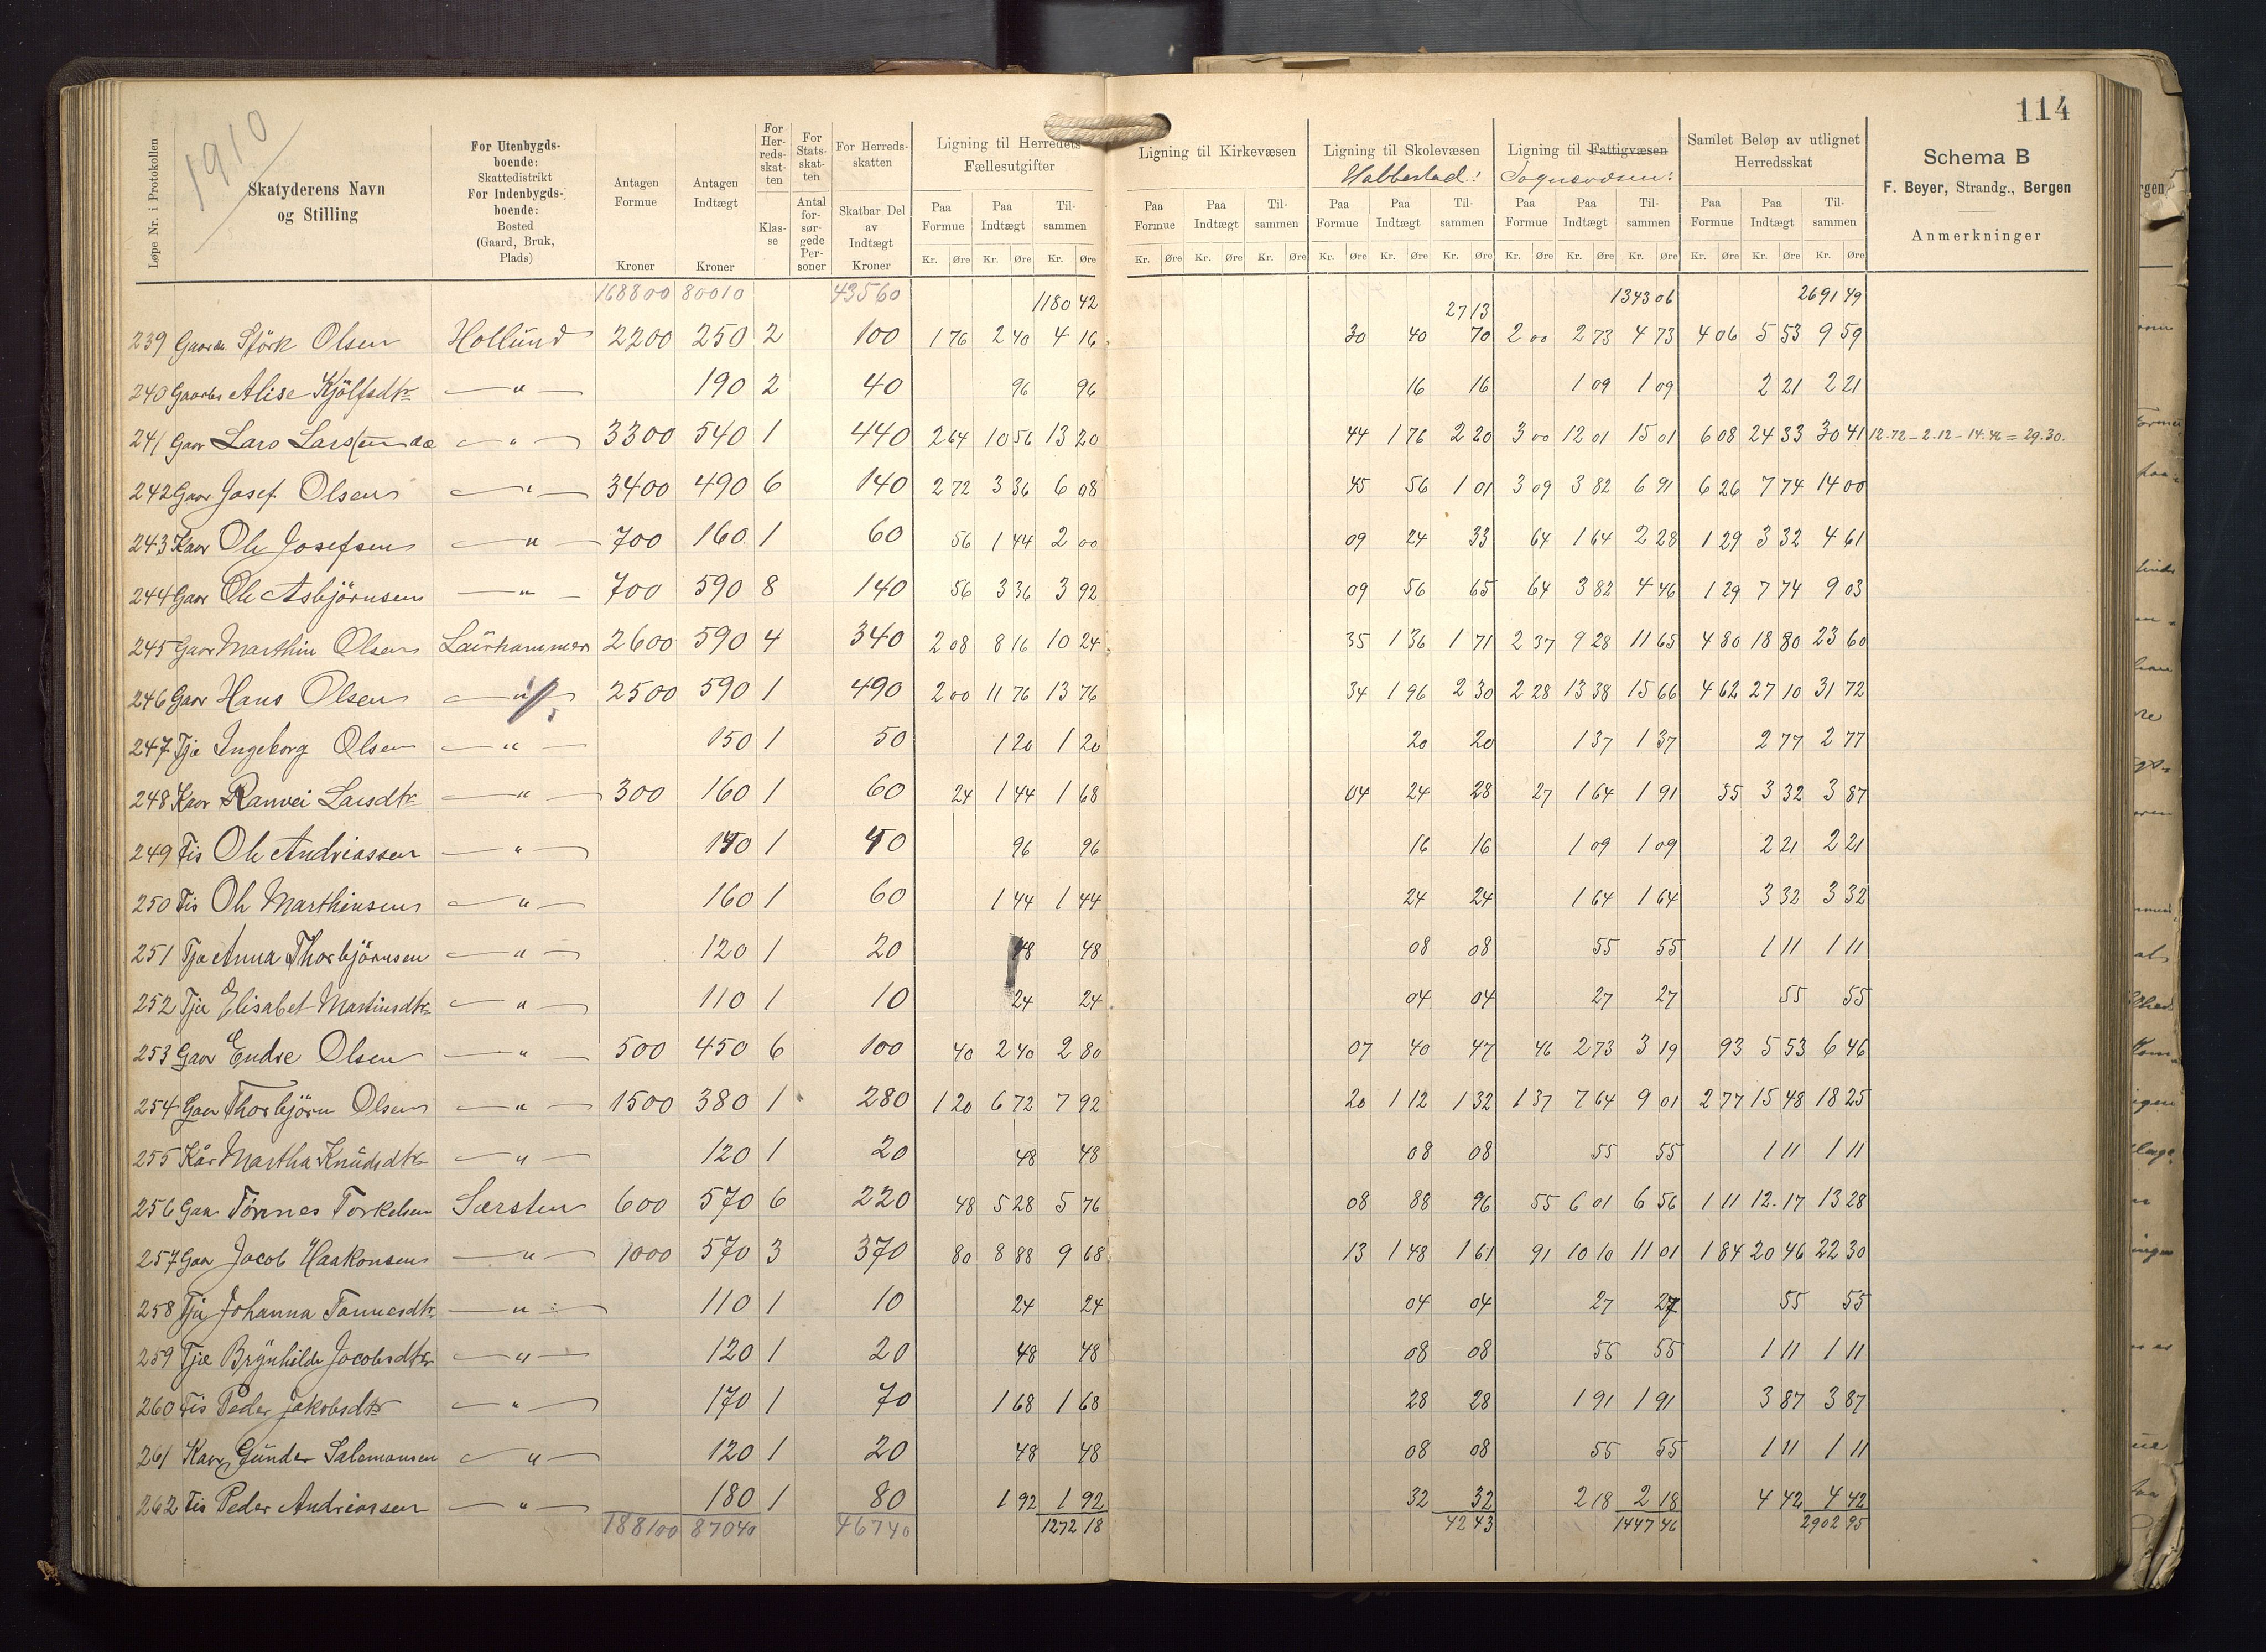 114
1910
Løpe Nr. i Protokollen
Skatyderens Navn og Stilling
For Utenbygdsboende: Skattedistrikt For Indenbygdsboende: Bosted (Gaard, Bruk, Plads)
Antagen Formue Kroner
Antagen Indtægt Kroner
For Herredsskatten Klasse
For Statsskatten Antal forsørgede Personer
For Herredsskatten Skatbar Del av Indtægt Kroner
Ligning til Herredets Fællesutgifter
Paa Formue Paa Indtægt Tilsammen
Kr. Øre Kr. Øre Kr. Øre
Ligning til Kirkevæsen
Paa Formue Paa Indtægt Tilsammen
Kr. Øre Kr. Øre Kr. Øre
Ligning til Skolevæsen
Paa Formue Paa Indtægt Tilsammen
Kr. Øre Kr. Øre Kr. Øre
Ligning til Fattigvæsen
Paa Formue Paa Indtægt Tilsammen
Kr. Øre Kr. Øre Kr. Øre
Samlet Beløp av utlignet Herredsskat
Paa Formue Paa Indtægt Tilsammen
Kr. Øre Kr. Øre Kr. Øre
Schema B
F. Beyer, Strandg., Bergen
Anmerkninger
168800 80010 43560 1180 42 27 13 1343 06 2691 49
239 Olsen Hollund 2200 250 2 100 1 76 2 40 4 16 30 40 70 2 00 2 73 4 73 4 06 5 53 9 59
240 Alise Kjölfsdtr — " — 190 2 40 96 96 16 16 1 09 1 09 2 21 2 21
241 Gaar Lars Larsen — " — 3300 540 1 440 2 64 10 56 13 20 44 1 76 2 20 3 00 12 01 15 01 6 08 24 33 30 41 12.72 – 2.12 – 14.46 = 29.30.
242 Gaar Josef Olsen — " — 3400 490 6 140 2 72 3 36 6 08 45 56 1 01 3 09 3 82 6 91 6 26 7 74 14 00
243 Kaar Ole Josefsen — " — 700 160 1 60 56 1 44 2 00 09 24 33 64 1 64 2 28 1 29 3 32 4 61
244 Gaar Ole Asbjörnsen — " — 700 590 8 140 56 3 36 3 92 09 56 65 64 3 82 4 46 1 29 7 74 9 03
245 Gaar Marthin Olsen Laurhammer 2600 590 4 340 2 08 8 16 10 24 35 1 36 1 71 2 37 9 28 11 65 4 80 18 80 23 60
246 Gaar Hans Olsen — " — 2500 590 1 490 2 00 11 76 13 76 34 1 96 2 30 2 28 13 38 15 66 4 62 27 10 31 72
247 Tje Ingeborg Olsen — " — 150 1 50 1 20 1 20 20 20 1 37 1 37 2 77 2 77
248 Kaar Ranvei Larsdtr — " — 300 160 1 60 24 1 44 1 68 04 24 28 27 1 64 1 91 55 3 32 3 87
249 Fis Ole Andreassen — " — 140 1 40 96 96 16 16 1 09 1 09 2 21 2 21
250 Fis Ole Marthinsen — " — 160 1 60 1 44 1 44 24 24 1 64 1 64 3 32 3 32
251 Tje Anna Thorbjörnsen — " — 120 1 20 48 48 08 08 55 55 1 11 1 11
252 Tje Elisabet Martinsdtr — " — 110 1 10 24 24 04 04 27 27 55 55
253 Gaar Endre Olsen — " — 500 450 6 100 40 2 40 2 80 07 40 47 46 2 73 3 19 93 5 53 6 46
254 Gaar Thorbjörn Olsen — " — 1500 380 1 280 1 20 6 72 7 92 20 1 12 1 32 1 37 7 64 9 01 2 77 15 48 18 25
255 Kår Martha Knudsdtr — " — 120 1 20 48 48 08 08 55 55 1 11 1 11
256 Gaar Tönnes Torkelsen Særsten 600 570 6 220 48 5 28 5 76 08 88 96 55 6 01 6 56 1 11 12.17 13 28
257 Gaar Jacob Haakonsen — " — 1000 570 3 370 80 8 88 9 68 13 1 48 1 61 91 10 10 11 01 1 84 20 46 22 30
258 Tje Johanna Tönnesdtr — " — 110 1 10 24 24 04 04 27 27 55 55
259 Tje Brynhilde Jacobsdtr — " — 120 1 20 48 48 08 08 55 55 1 11 1 11
260 Fis Peder Jakobsdtr — " — 170 1 70 1 68 1 68 28 28 1 91 1 91 3 87 3 87
261 Kaar Gunder Salomonsen — " — 120 1 20 48 48 08 08 55 55 1 11 1 11
262 Fis Peder Andreassen — " — 180 1 80 1 92 1 92 32 32 2 18 2 18 4 42 4 42
188100 87040 46740 1272 18 42 43 1447 46 2902 95